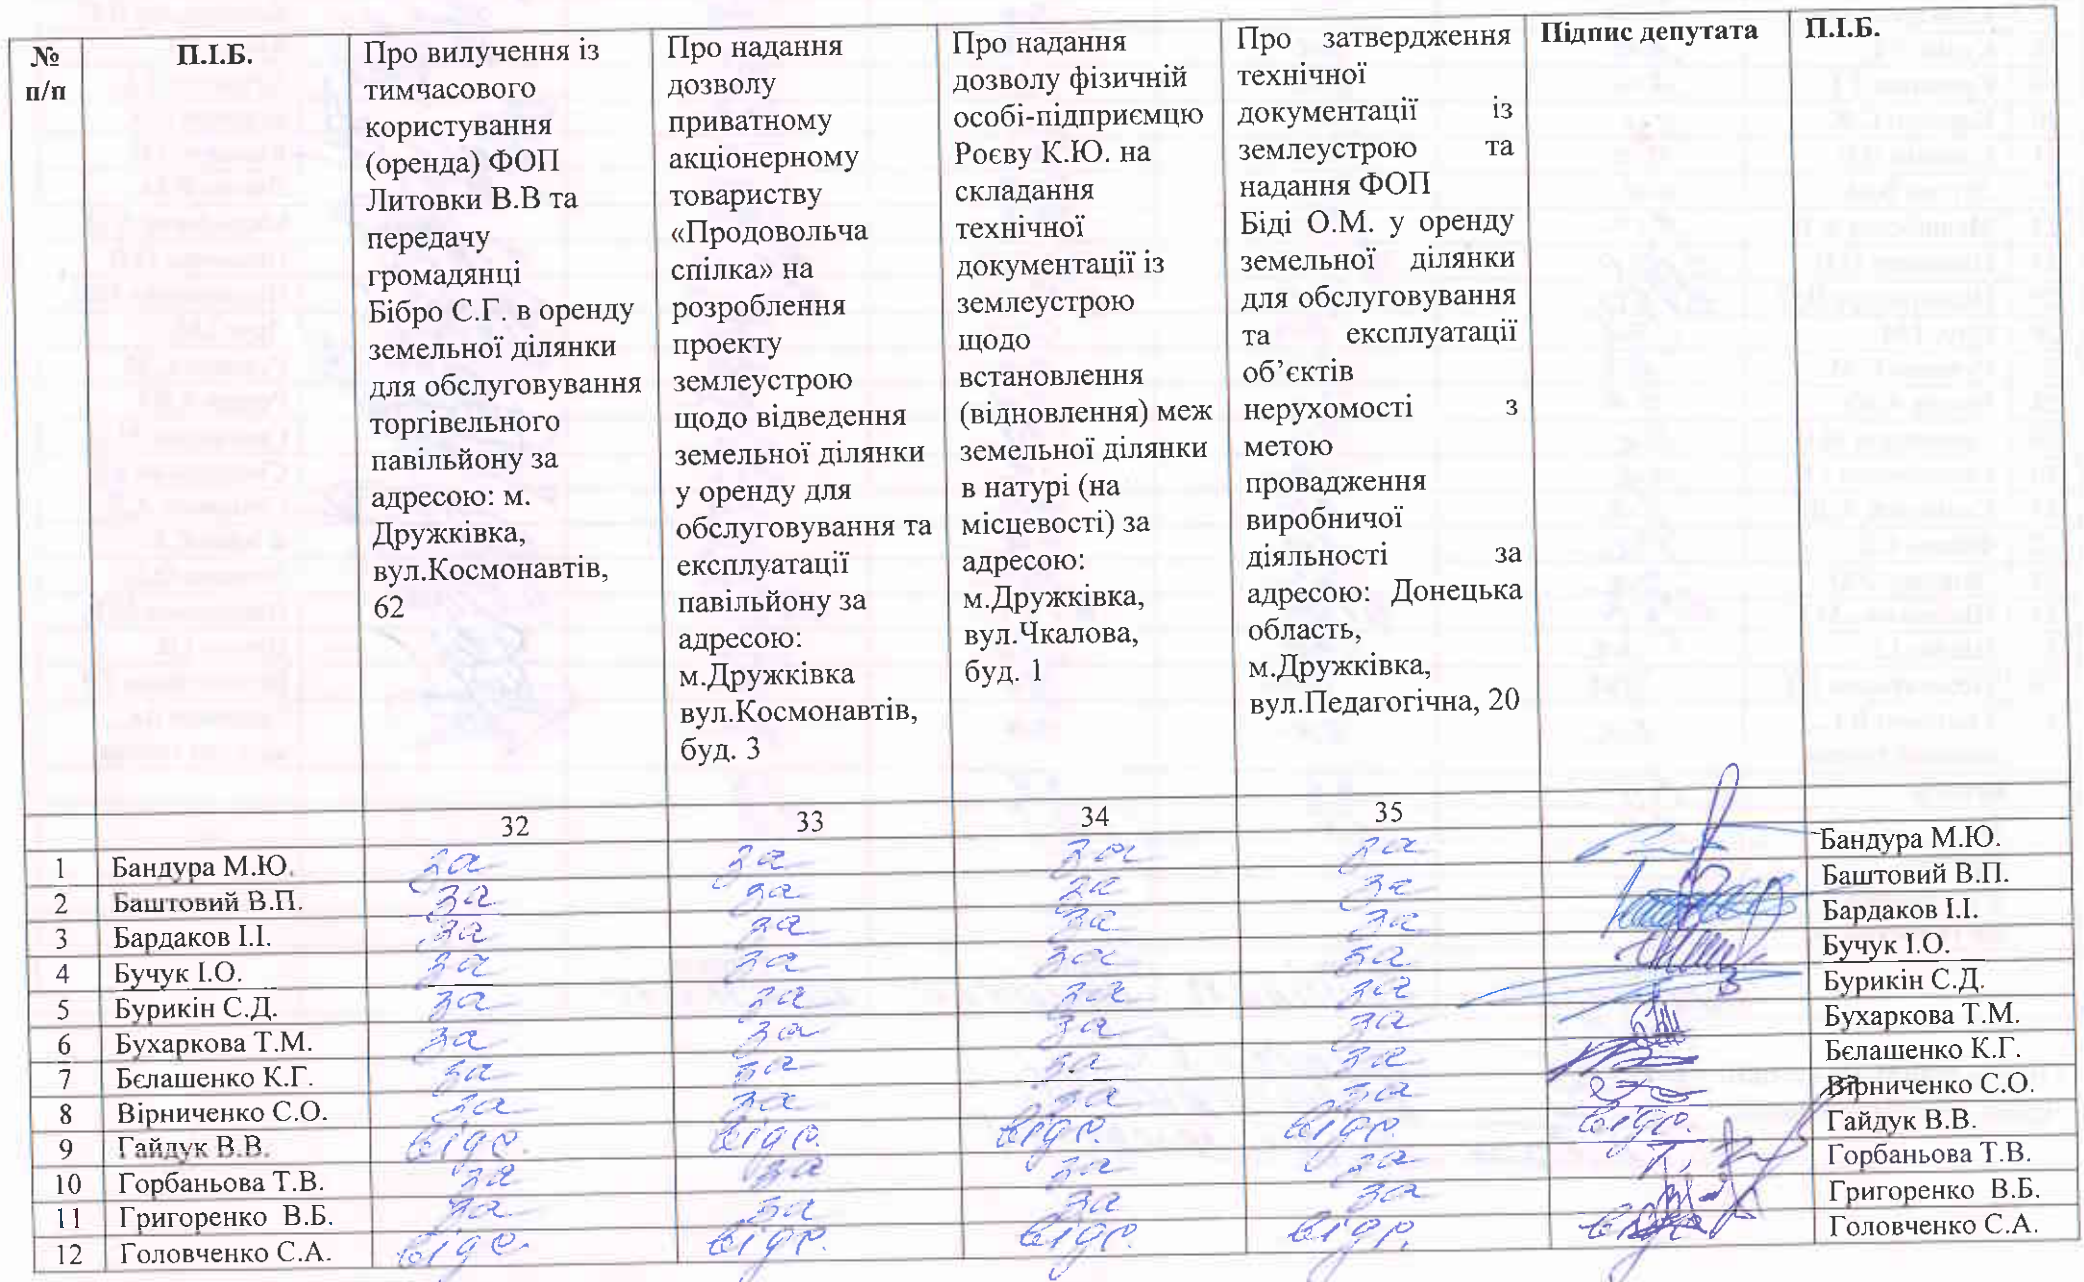 № п/п
П.І.Б.
Про вилучення із
тимчасового
користування
(оренда) ФОП
Литовки В.В та
передачу
громадянці
Бібро С.Г. в оренду
земельної ділянки
для обслуговування
торгівельного
павільйону за
адресою: м.
Дружківка,
вул.Космонавтів,
62
Про надання
дозволу
приватному
акціонерному
товариству
«Продовольча
спілка» на
розроблення
проекту
землеустрою
щодо відведення
земельної ділянки
у оренду для
обслуговування та
експлуатації
павільйону за
адресою:
м.Дружківка
вул.Космонавтів,
буд. 3
Про надання
дозволу фізичній
особі-підприємцю
Роєву К.Ю. на
складання
технічної
документації із
землеустрою
щодо
встановлення
(відновлення) меж
земельної ділянки
в натурі (на
місцевості) за
адресою:
м.Дружківка,
вул.Чкалова,
буд. 1
Про затвердження
технічної
документації із
землеустрою та
надання ФОП
Біді О.М. у оренду
земельної ділянки
для обслуговування
та експлуатації
об’єктів
нерухомості з
метою
провадження
виробничої
діяльності за
адресою: Донецька
область,
м.Дружківка,
вул.Педагогічна, 20
Підпис депутата
П.І.Б.
32 33 34 35
1 Бандура М.Ю. за за за за Бандура М.Ю.
2 Баштовий В.П. за за за за Баштовий В.П.
3 Бардаков І.І. за за за за Бардаков І.І.
4 Бучук І.О. за за за за Бучук І.О.
5 Бурикін С.Д. за за за за Бурикін С.Д.
6 Бухаркова Т.М. за за за за Бухаркова Т.М.
7 Бєлашенко К.Г. за за за за Бєлашенко К.Г.
8 Вірниченко С.О. за за за за Вірниченко С.О.
9 Гайдук В.В. відр. відр. відр. відр. відр. Гайдук В.В.
10 Горбаньова Т.В. за за за за Горбаньова Т.В.
11 Григоренко В.Б. за за за за Григоренко В.Б.
12 Головченко С.А. відр. відр. відр. відр. Головченко С.А.